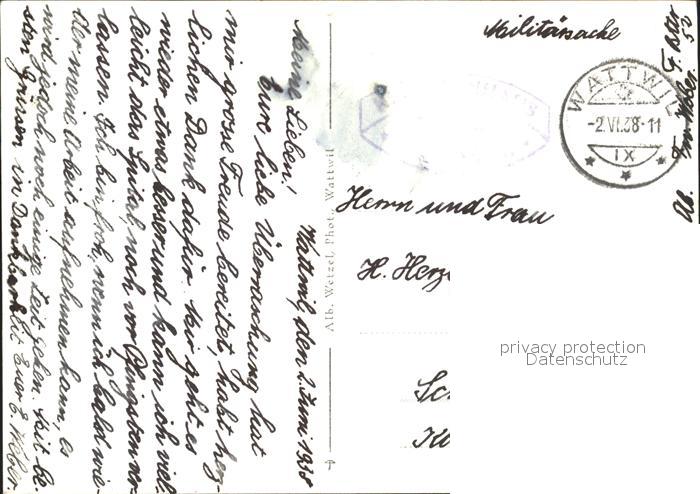 Militärsache
WATTWIL
-2.VI.38-11
IX
Herrn und Frau
H. Herz
Alb. Wetzel, Phot., Wattwil
Wattwil, den 2. Juni 1938
Meine Lieben!
Eure liebe Überraschung hat
mir grosse Freude bereitet, habt herz-
lichen Dank dafür. Mir geht es
wieder etwas besser und kann ich viel-
leicht das Spital noch vor Pfingsten ver-
lassen. Ich bin froh, wenn ich bald wie-
der meine Arbeit aufnehmen kann, es
wird jedoch noch einige Zeit gehen. Mit be-
sten Grüssen in Dankbarkeit Euer E. Weber.
privacy protection
Datenschutz